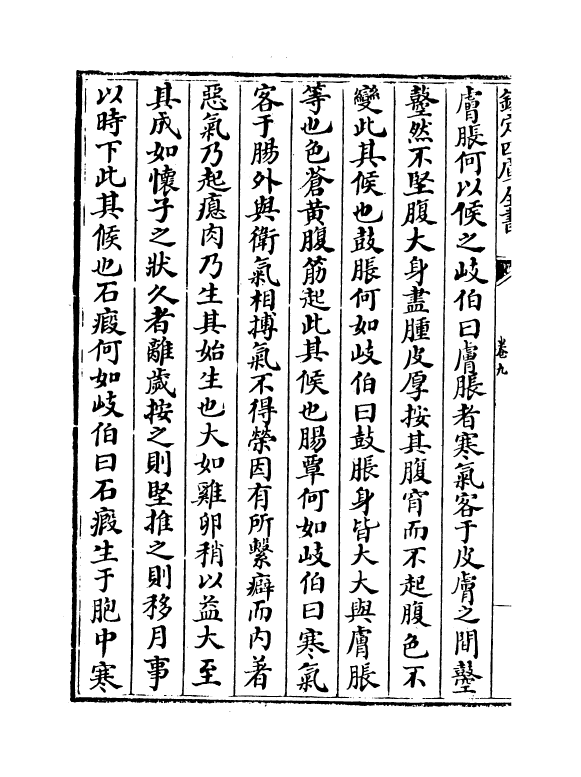 欽定四庫全書
卷九
膚脹何以候之岐伯曰膚脹者寒氣客于皮膚之間鼞
鼞然不堅腹大身盡腫皮厚按其腹窅而不起腹色不
變此其候也鼓脹何如岐伯曰鼓脹身皆大大與膚脹
等也色蒼黃腹筋起此其候也腸覃何如岐伯曰寒氣
客于腸外與衛氣相搏氣不得榮因有所繫癖而内著
惡氣乃起瘜肉乃生其始生也大如雞卵稍以益大至
其成如懷子之狀久者離歲按之則堅推之則移月事
以時下此其候也石瘕何如岐伯曰石瘕生于胞中寒